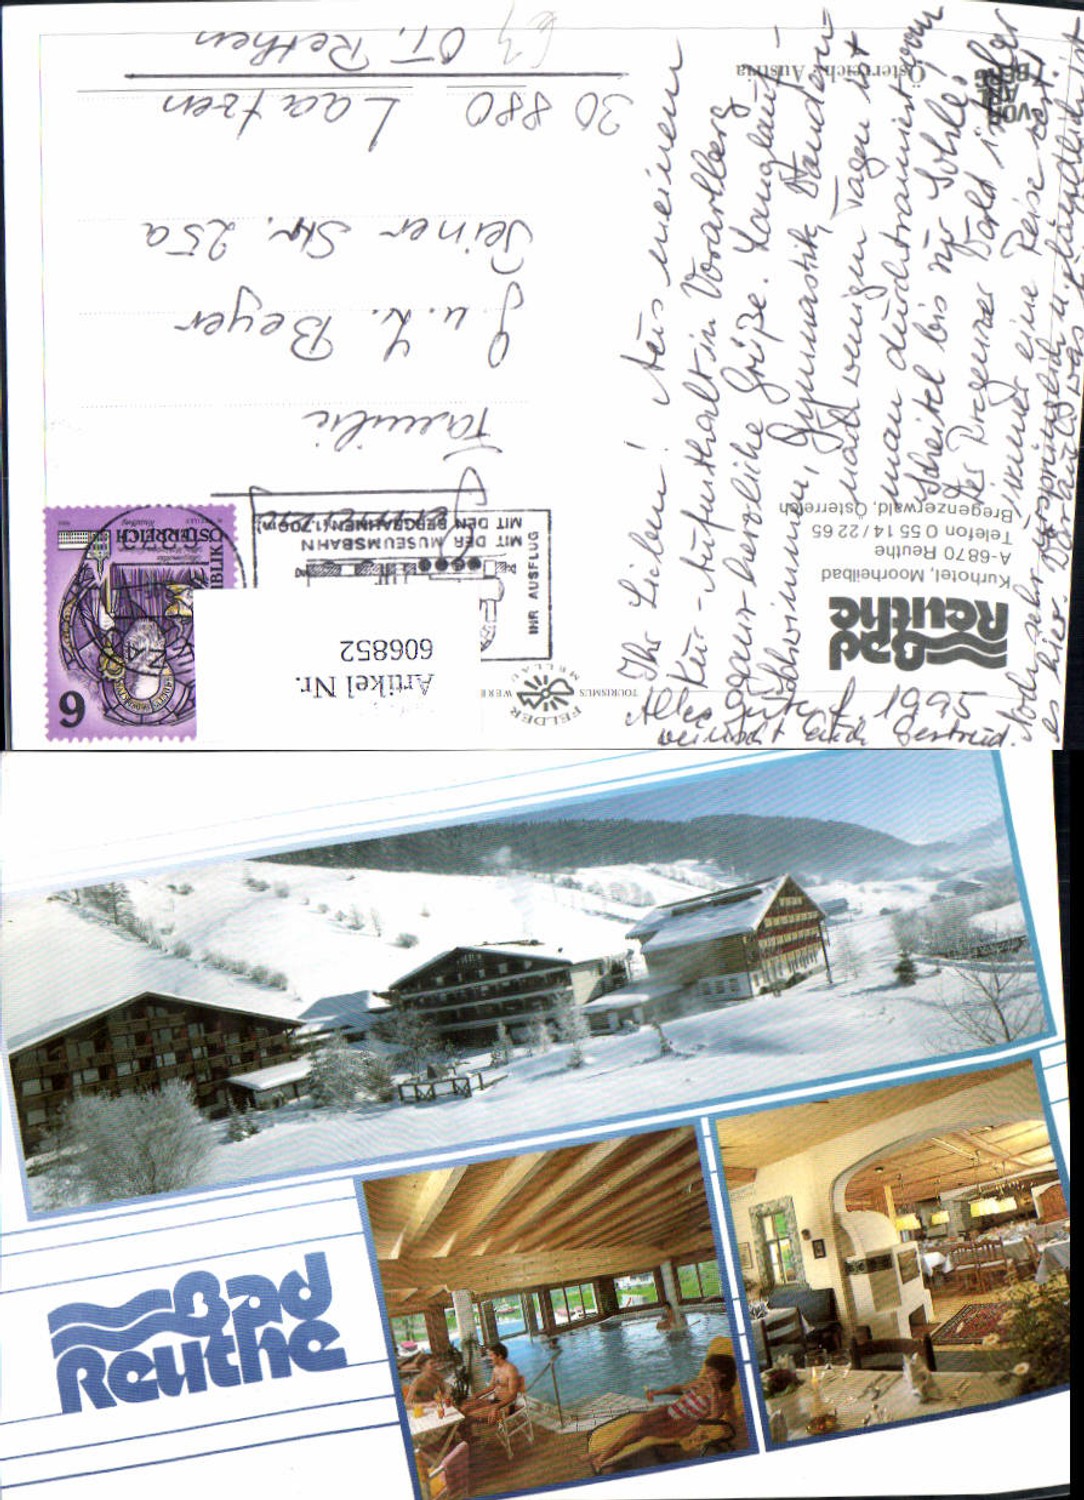 Bad
Reuthe
Kurhotel, Moorheilbad
A-6870 Reuthe
Telefon 0 55 14 / 22 65
Bregenzerwald, Österreich
VOR
ARL
BERG
Österreich, Austria
FELDER
MELLAU
TOURISMUS
Ihr Lieben! Aus meinem
Kur-Aufenthalt in Vorarlberg
ganz herzliche Grüße. Langlauf-
Schwimmen, Gymnastik, Wandern-
nach wenigen Tagen ist
man durchtrainiert vom
Scheitel bis zur Sohle!
Der Bregenzer Wald ist
immer eine Reise wert!
Noch sehr ursprünglich u. ländlich ist
es hier.
Alles Gute f. 1995
wünscht Euch Gertrud.
IHR AUSFLUG
MIT DER MUSEUMSBAHN
MIT DEN BERGBAHNEN (1.700m)
REPUBLIK
ÖSTERREICH
6
Artikel Nr.
606852
Familie
J. u. K. Beyer
Peiner Str. 25a
30 880 Laatzen
OT. Rethen
Bad
Reuthe